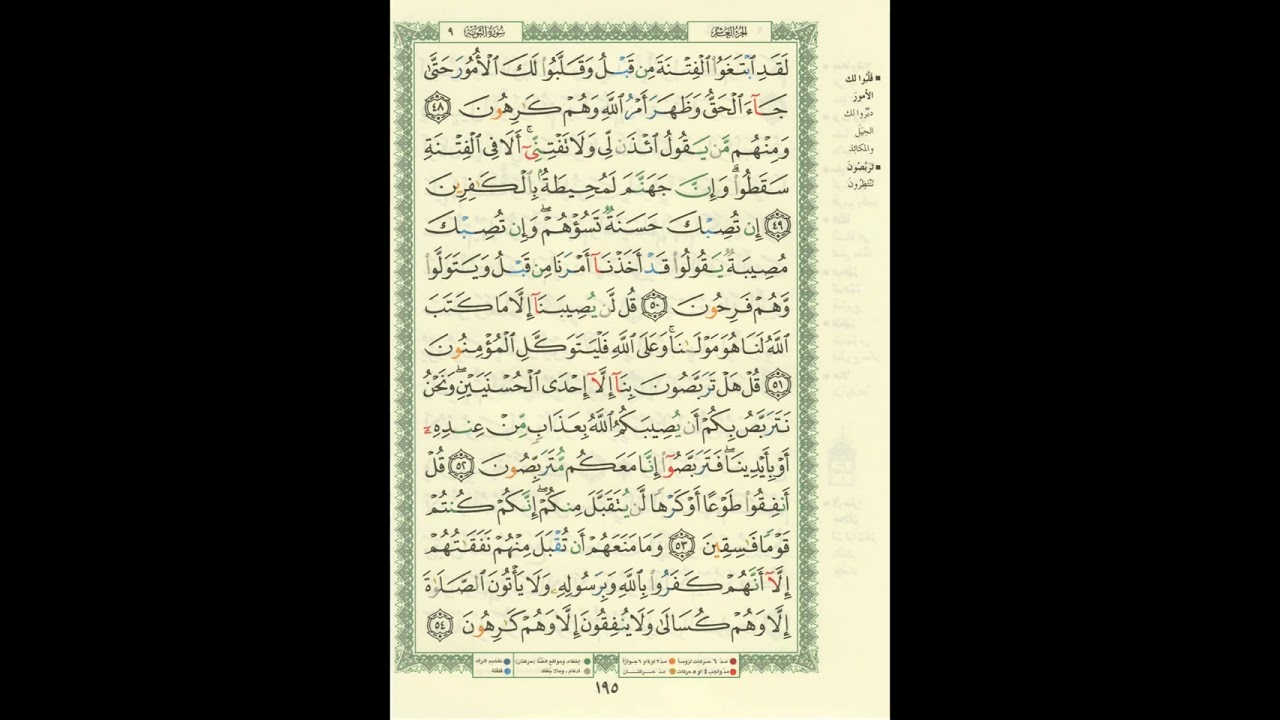 الجزء العاشر
سورة التوبة ٩
لَقَدِ ٱبْتَغَوُا۟ ٱلْفِتْنَةَ مِن قَبْلُ وَقَلَّبُوا۟ لَكَ ٱلْأُمُورَ حَتَّىٰ
جَآءَ ٱلْحَقُّ وَظَهَرَ أَمْرُ ٱللَّهِ وَهُمْ كَٰرِهُونَ ٤٨
وَمِنْهُم مَّن يَقُولُ ٱئْذَن لِّى وَلَا تَفْتِنِّىٓ ۚ أَلَا فِى ٱلْفِتْنَةِ
سَقَطُوا۟ ۗ وَإِنَّ جَهَنَّمَ لَمُحِيطَةٌۢ بِٱلْكَٰفِرِينَ
٤٩ إِن تُصِبْكَ حَسَنَةٌ تَسُؤْهُمْ ۖ وَإِن تُصِبْكَ
مُصِيبَةٌ يَقُولُوا۟ قَدْ أَخَذْنَآ أَمْرَنَا مِن قَبْلُ وَيَتَوَلَّوا۟
وَّهُمْ فَرِحُونَ ٥٠ قُل لَّن يُصِيبَنَآ إِلَّا مَا كَتَبَ
ٱللَّهُ لَنَا هُوَ مَوْلَىٰنَا ۚ وَعَلَى ٱللَّهِ فَلْيَتَوَكَّلِ ٱلْمُؤْمِنُونَ
٥١ قُلْ هَلْ تَرَبَّصُونَ بِنَآ إِلَّآ إِحْدَى ٱلْحُسْنَيَيْنِ ۖ وَنَحْنُ
نَتَرَبَّصُ بِكُمْ أَن يُصِيبَكُمُ ٱللَّهُ بِعَذَابٍ مِّنْ عِندِهِۦٓ
أَوْ بِأَيْدِينَا ۖ فَتَرَبَّصُوٓا۟ إِنَّا مَعَكُم مُّتَرَبِّصُونَ ٥٢ قُلْ
أَنفِقُوا۟ طَوْعًا أَوْ كَرْهًا لَّن يُتَقَبَّلَ مِنكُمْ ۖ إِنَّكُمْ كُنتُمْ
قَوْمًا فَٰسِقِينَ ٥٣ وَمَا مَنَعَهُمْ أَن تُقْبَلَ مِنْهُمْ نَفَقَٰتُهُمْ
إِلَّآ أَنَّهُمْ كَفَرُوا۟ بِٱللَّهِ وَبِرَسُولِهِۦ وَلَا يَأْتُونَ ٱلصَّلَوٰةَ
إِلَّا وَهُمْ كُسَالَىٰ وَلَا يُنفِقُونَ إِلَّا وَهُمْ كَٰرِهُونَ ٥٤
■ قلَّبوا لك
الأمورَ
دبّروا لك
الحِيَل
والمكائد
■ تَرَبَّصُونَ
تنتظرون
مدّ ٦ حركات لزوماً مدّ ٢ أو ٤ أو ٦ جوازاً إخفاء، ومواقع الغُنَّة (حركتان) تفخيم الراء
مدّ واجب ٤ أو ٥ حركات مدّ حركتان ادغام، وما لا يُلفظ قلقلة
١٩٥